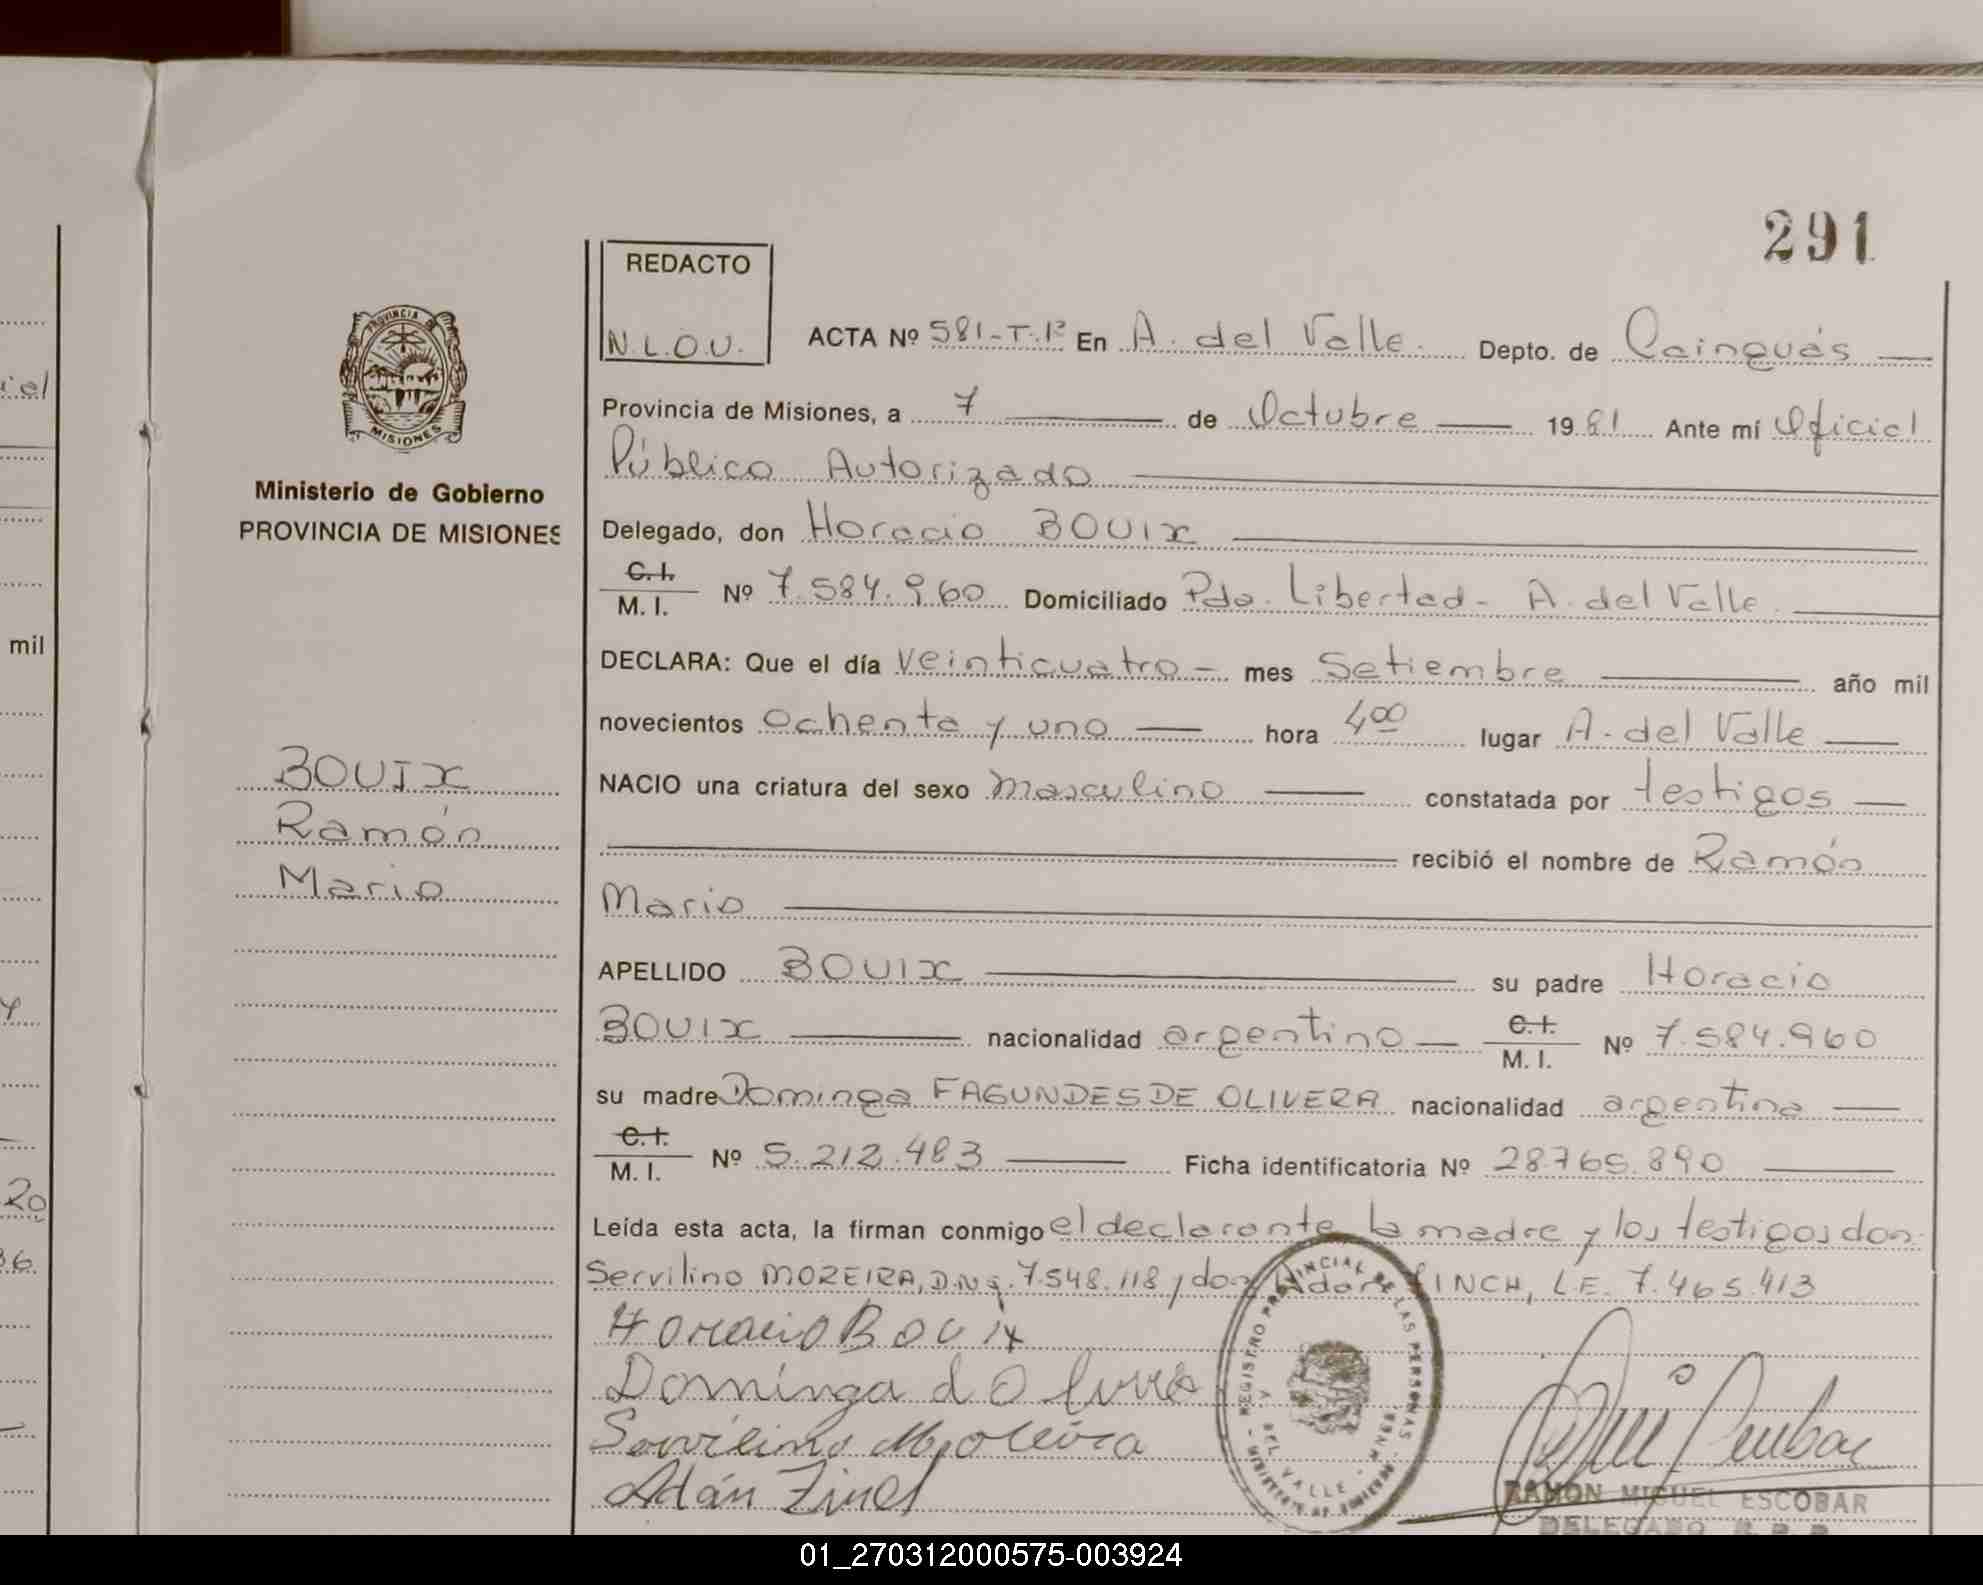 291
REDACTO
N.L.O.U.
ACTA Nº 581-T.1º En A. del Valle. Depto. de Cainguás
Provincia de Misiones, a 7 de Octubre 1981 Ante mí Oficial
Público Autorizado
PROVINCIA
MISIONES
Ministerio de Gobierno
PROVINCIA DE MISIONES
Delegado, don Horacio BOUIX
C.I.
M.I. Nº 7.584.960 Domiciliado Pdo. Libertad - A. del Valle.
DECLARA: Que el día veinticuatro - mes Setiembre año mil
novecientos ochenta y uno hora 4 00 lugar A. del Valle
NACIO una criatura del sexo masculino constatada por testigos
recibió el nombre de Ramón
Mario
BOUIX
Ramón
Mario
APELLIDO BOUIX su padre Horacio
BOUIX nacionalidad argentino C.I.
M.I. Nº 7.584.960
su madre Dominga FAGUNDES DE OLIVERA nacionalidad argentina
C.I.
M.I. Nº 5.212.483 Ficha identificatoria Nº 28.765.890
Leída esta acta, la firman conmigo el declarante la madre y los testigos don
Servilino MOREIRA, D.N.I. 7.548.118 y don Adán FINCH, L.E. 7.465.413
Horacio BOUIX
Dominga d O
Servilino Moreira
Adán
REGISTRO PROVINCIAL DE LAS PERSONAS
DEL VALLE
RAMON MIGUEL ESCOBAR
DELEGADO R.P.P.
mil
20
36
01_270312000575-003924